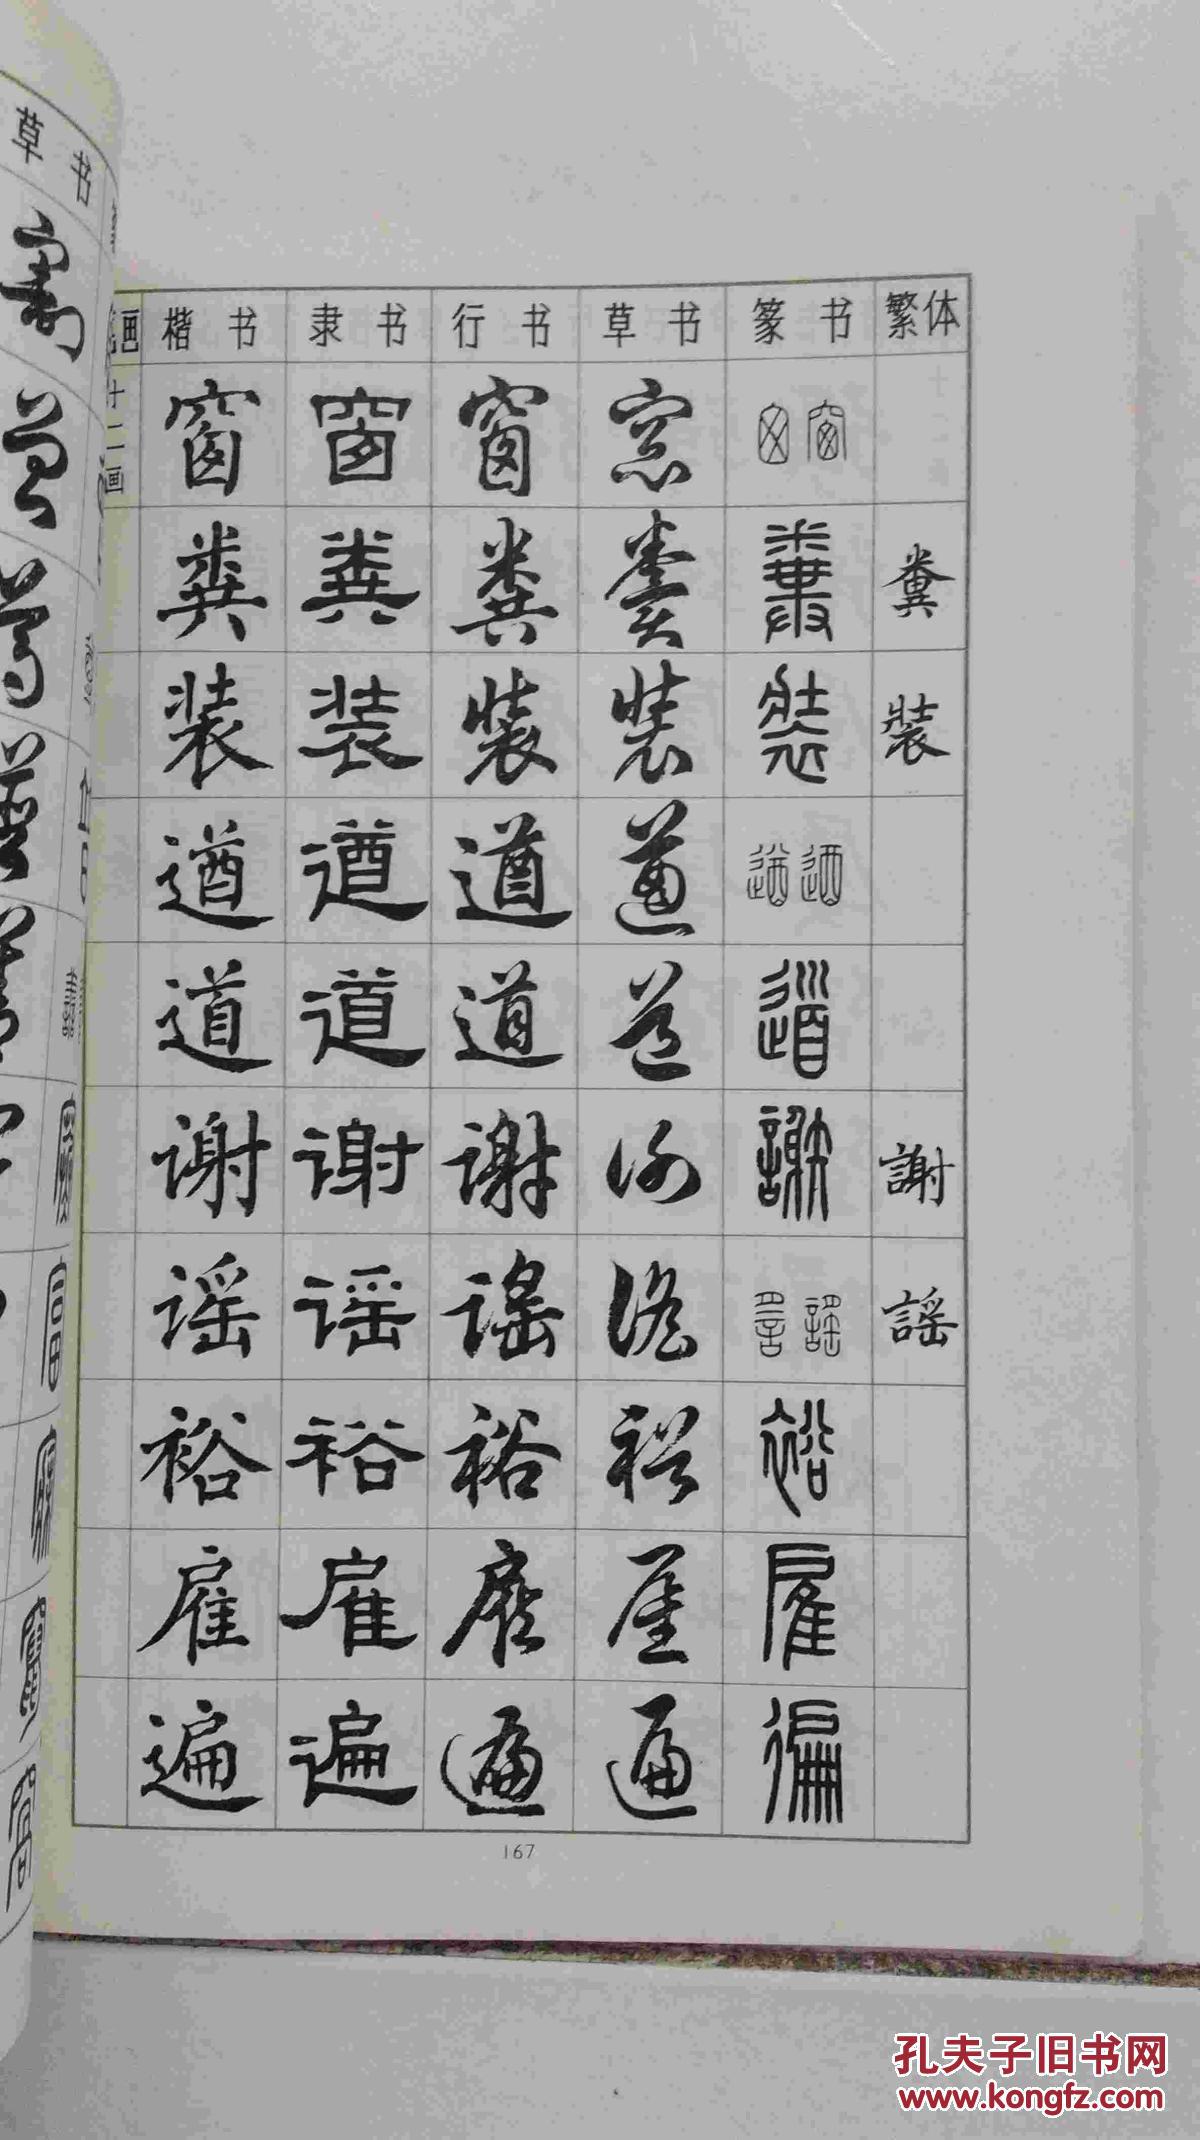 草书
笔画 楷书 隶书 行书 草书 篆书 繁体
十二画 窗 窗 窗 窗 窗 窗
粪 粪 粪 粪 糞 糞
装 装 裝 裝 裝 裝
遒 遒 遒 遒 遒 遒
道 道 道 道 道
谢 谢 谢 谢 謝 謝
谣 谣 谣 谣 謠 謠
裕 裕 裕 裕 裕
雇 雇 雇 雇 雇
遍 遍 遍 遍 徧
167
孔夫子旧书网
www.kongfz.com